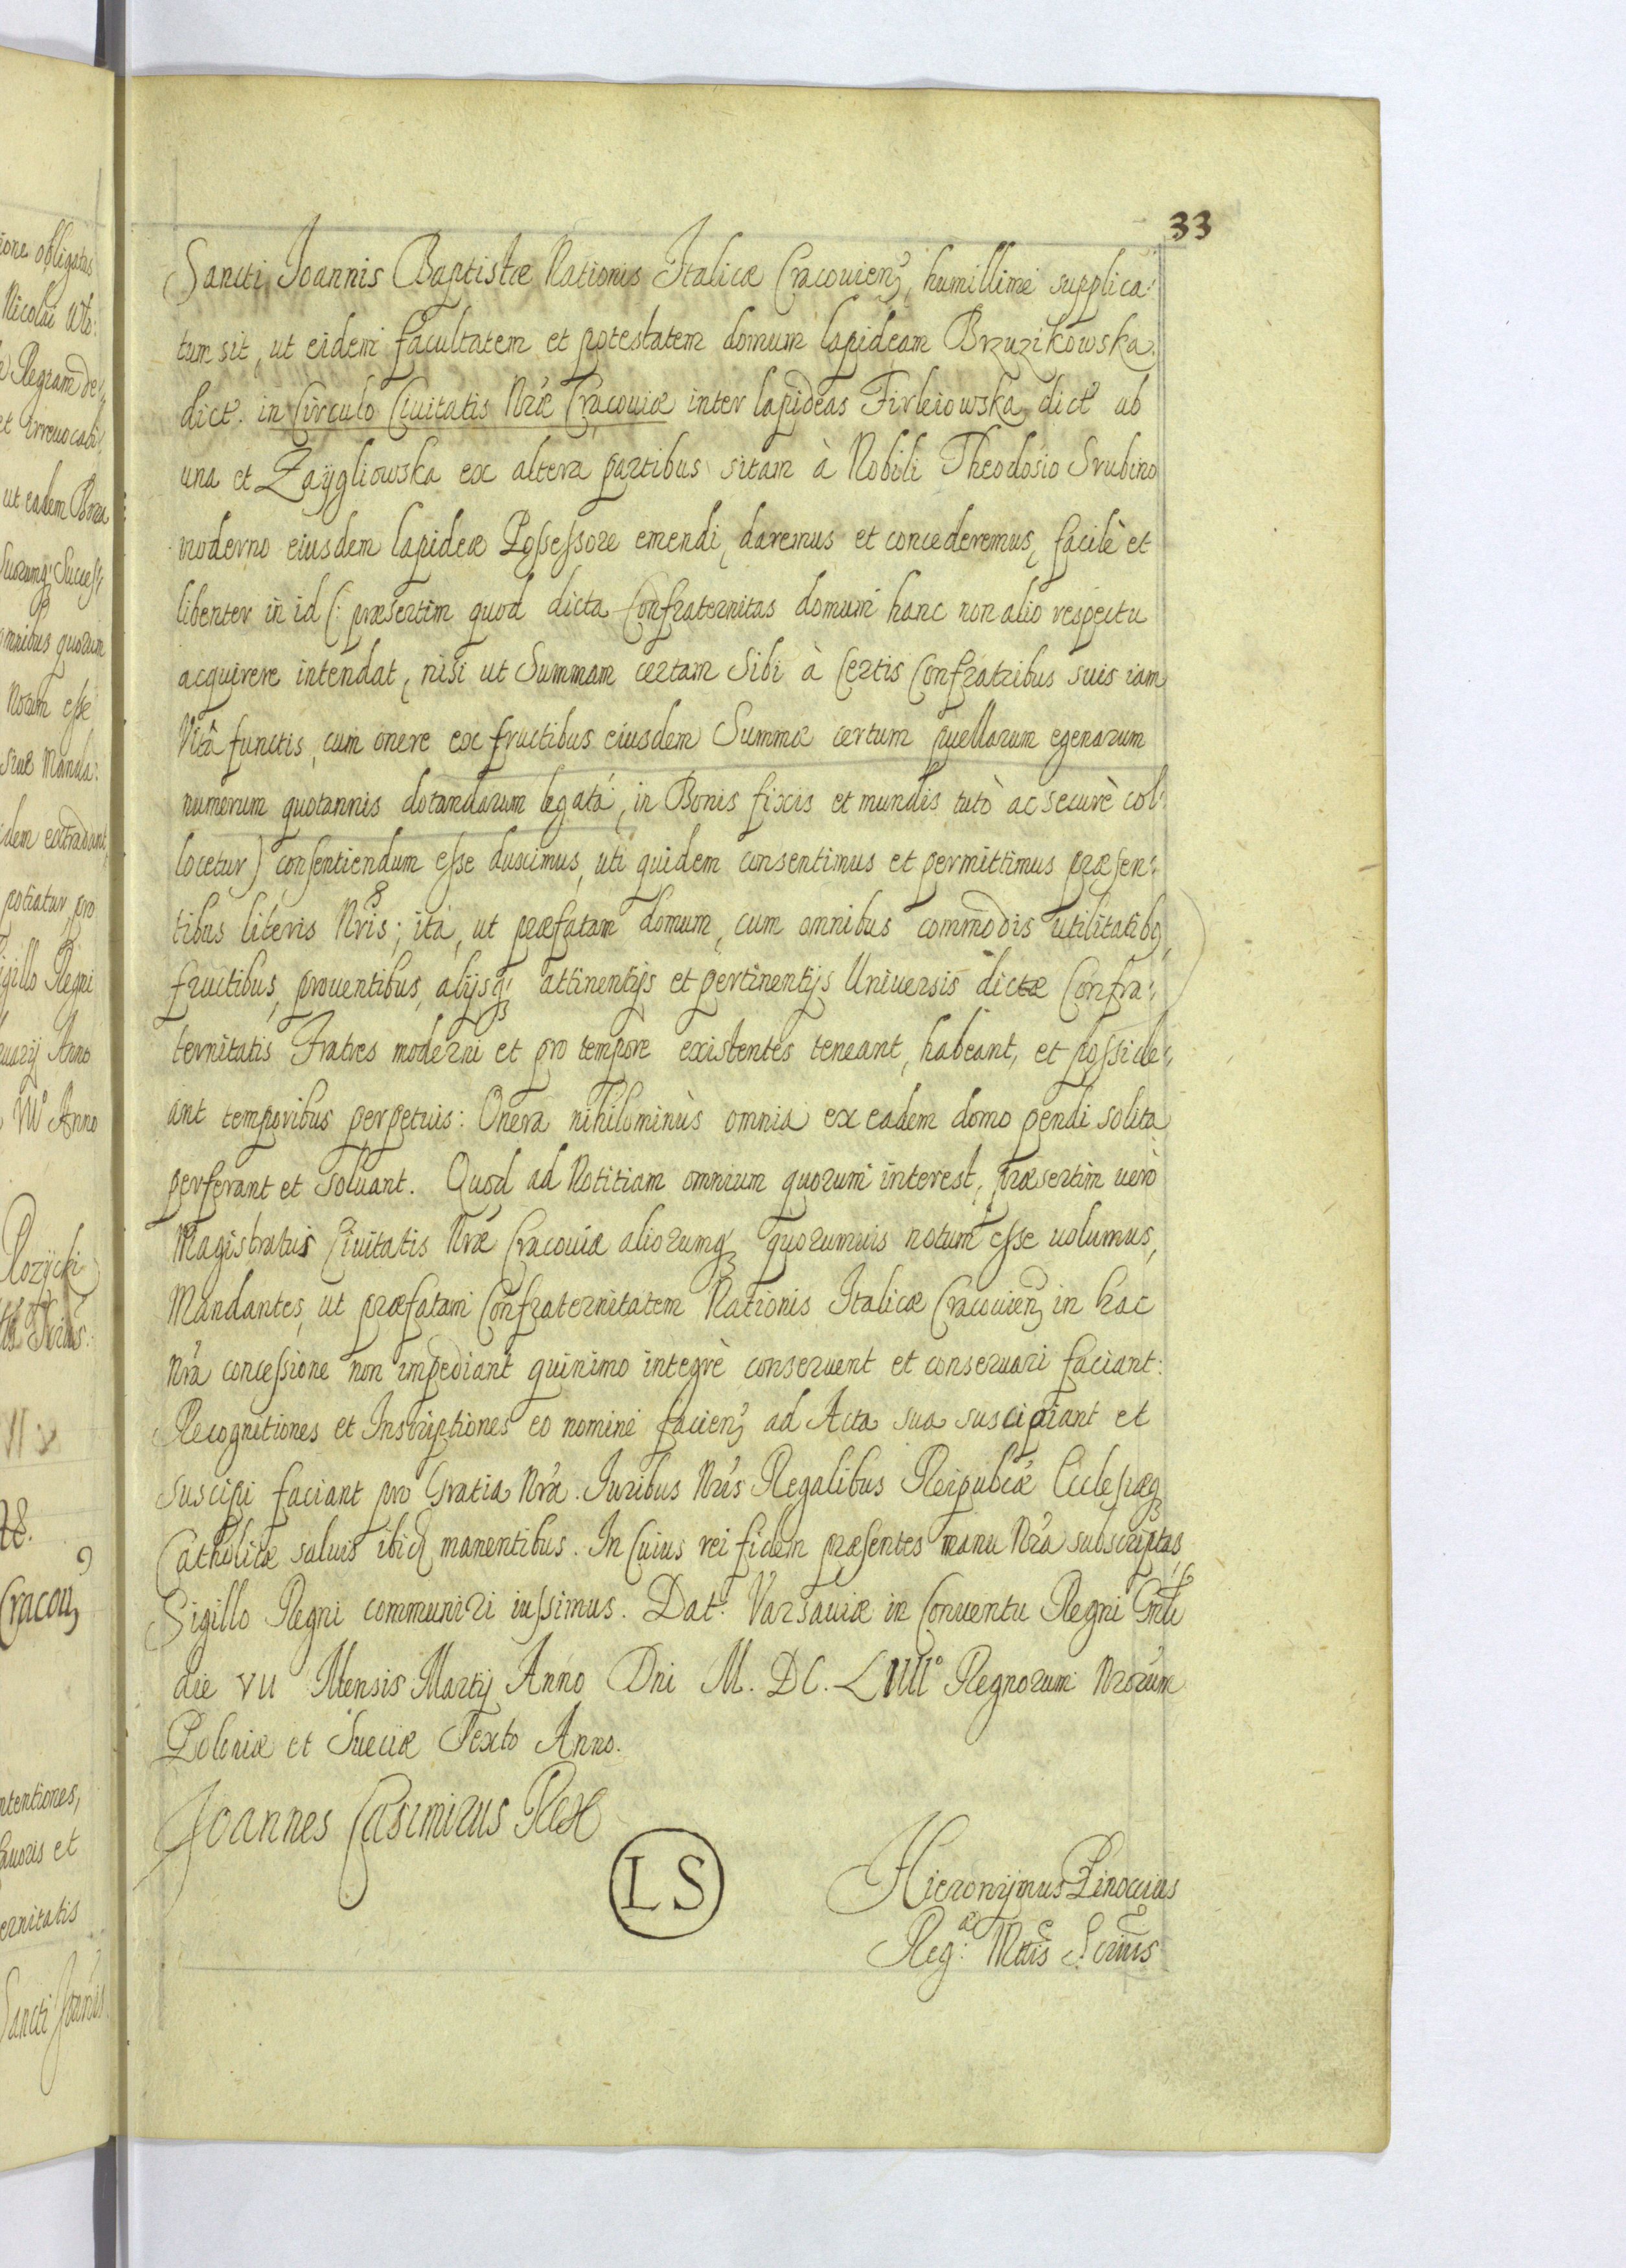 33
Sancti Joannis Baptistæ Nationis Italicæ Cracouien, humillimè supplica:
tum sit, ut eidem facultatem et potestatem domum lapideam Brzuzikowska
dict. in Circulo Ciuitatis Nræ Cracouiæ inter lapideas Firleiowska dict ab
una et Zaÿgliowska ex altera partibus sitam à Nobili Theodosio Srubino
moderno eiusdem lapideæ Possessore emendi, daremus et concederemus, facilè et
libenter in id (: præsertim quod dicta Confraternitas domum hanc non alio respectu
acquirere intendat, nisi ut Summam certam Sibi à Certis Confratribus suis iam
Vitâ functis, cum onere ex fructibus eiusdem Summæ certum puellarum egenarum
numerum quotannis dotandarum legatã, in Bonis fixis et mundis tutò ac securè col:
locetur) consentiendum esse duximus, uti quidem consentimus et permittimus præsen:
tibus literis Nris; ità, ut præfatam domum, cum omnibus commodis utilitatibq,
fructibus, prouentibus, alijsq; attinentijs et pertinentijs Uniuersis dictæ Confra:
ternitatis Fratres moderni et pro tempore existentes teneant, habeant, et posside:
ant temporibus perpetuis: Onera nihilominùs omnia ex eadem domo pendi solita
perferant et soluant. Quod ad Notitiam omnium quorum interest, præsertim uerò
Magistratus Ciuitatis Nræ Cracouiæ aliorumq quorumuis notum esse uolumus,
Mandantes, ut præfatam Confraternitatem Nationis Italicæ Cracouien in hac
Nrã concessione non impediant quinimo integrè conseruent et conseruari faciant:
Recognitiones et Inscriptiones eo nomine facien ad Acta sua suscipiant et
suscipi faciant pro Gratia Nrã. Juribus Nris Regalibus Reipublicæ Ecclesiæq
Catholicæ saluis ibid manentibus. In Cuius rei fidem præsentes manu Nrã subscriptas,
Sigillo Regni communiri iussimus. Dat: Varsauiæ in Conuentu Regni Gnli
die VII Mensis Martij Anno Dni M. DC. LIIII° Regnorum Nrorum
Poloniæ et Sueciæ Sexto Anno.
Joannes Casimirus Rex
L S
Hieronÿmus Pinoccius
Reg: Mttis Scrius